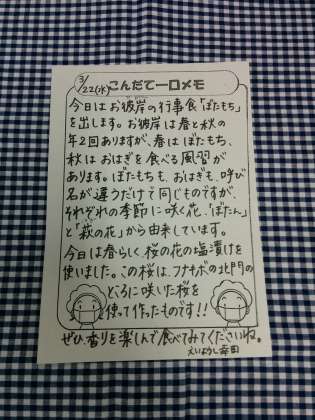 3/22(水) こんだて一口メモ
今日はお彼岸の行事食「ぼたもち」
を出します。お彼岸は春と秋の
年2回ありますが、春はぼたもち、
秋はおはぎを食べる風習が
あります。ぼたもちも、おはぎも、呼び
名が違うだけで同じものですが、
それぞれの季節に咲く花、「ぼたん」
と「萩の花」から由来しています。
今日は春らしく、桜の花の塩漬けを
使いました。この桜は、フナキボの北門の
ところに咲いた桜を
使って作ったものです!!
ぜひ香りを楽しんで食べてみてくださいね。
えいようし